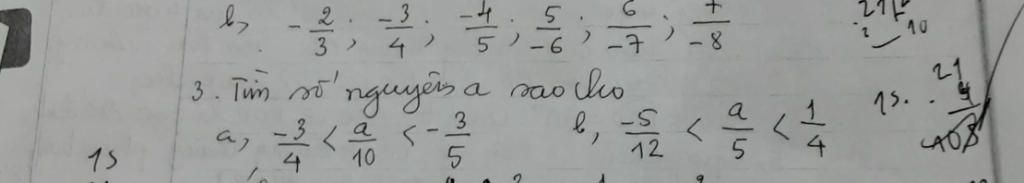 b, -2/3 ; -3/4 ; -4/5 ; 5/-6 ; 6/-7 ; 7/-8
3. Tìm số nguyên a sao cho
a, -3/4 < a/10 < -3/5 b, -5/12 < a/5 < 1/4
15
10
21
15.